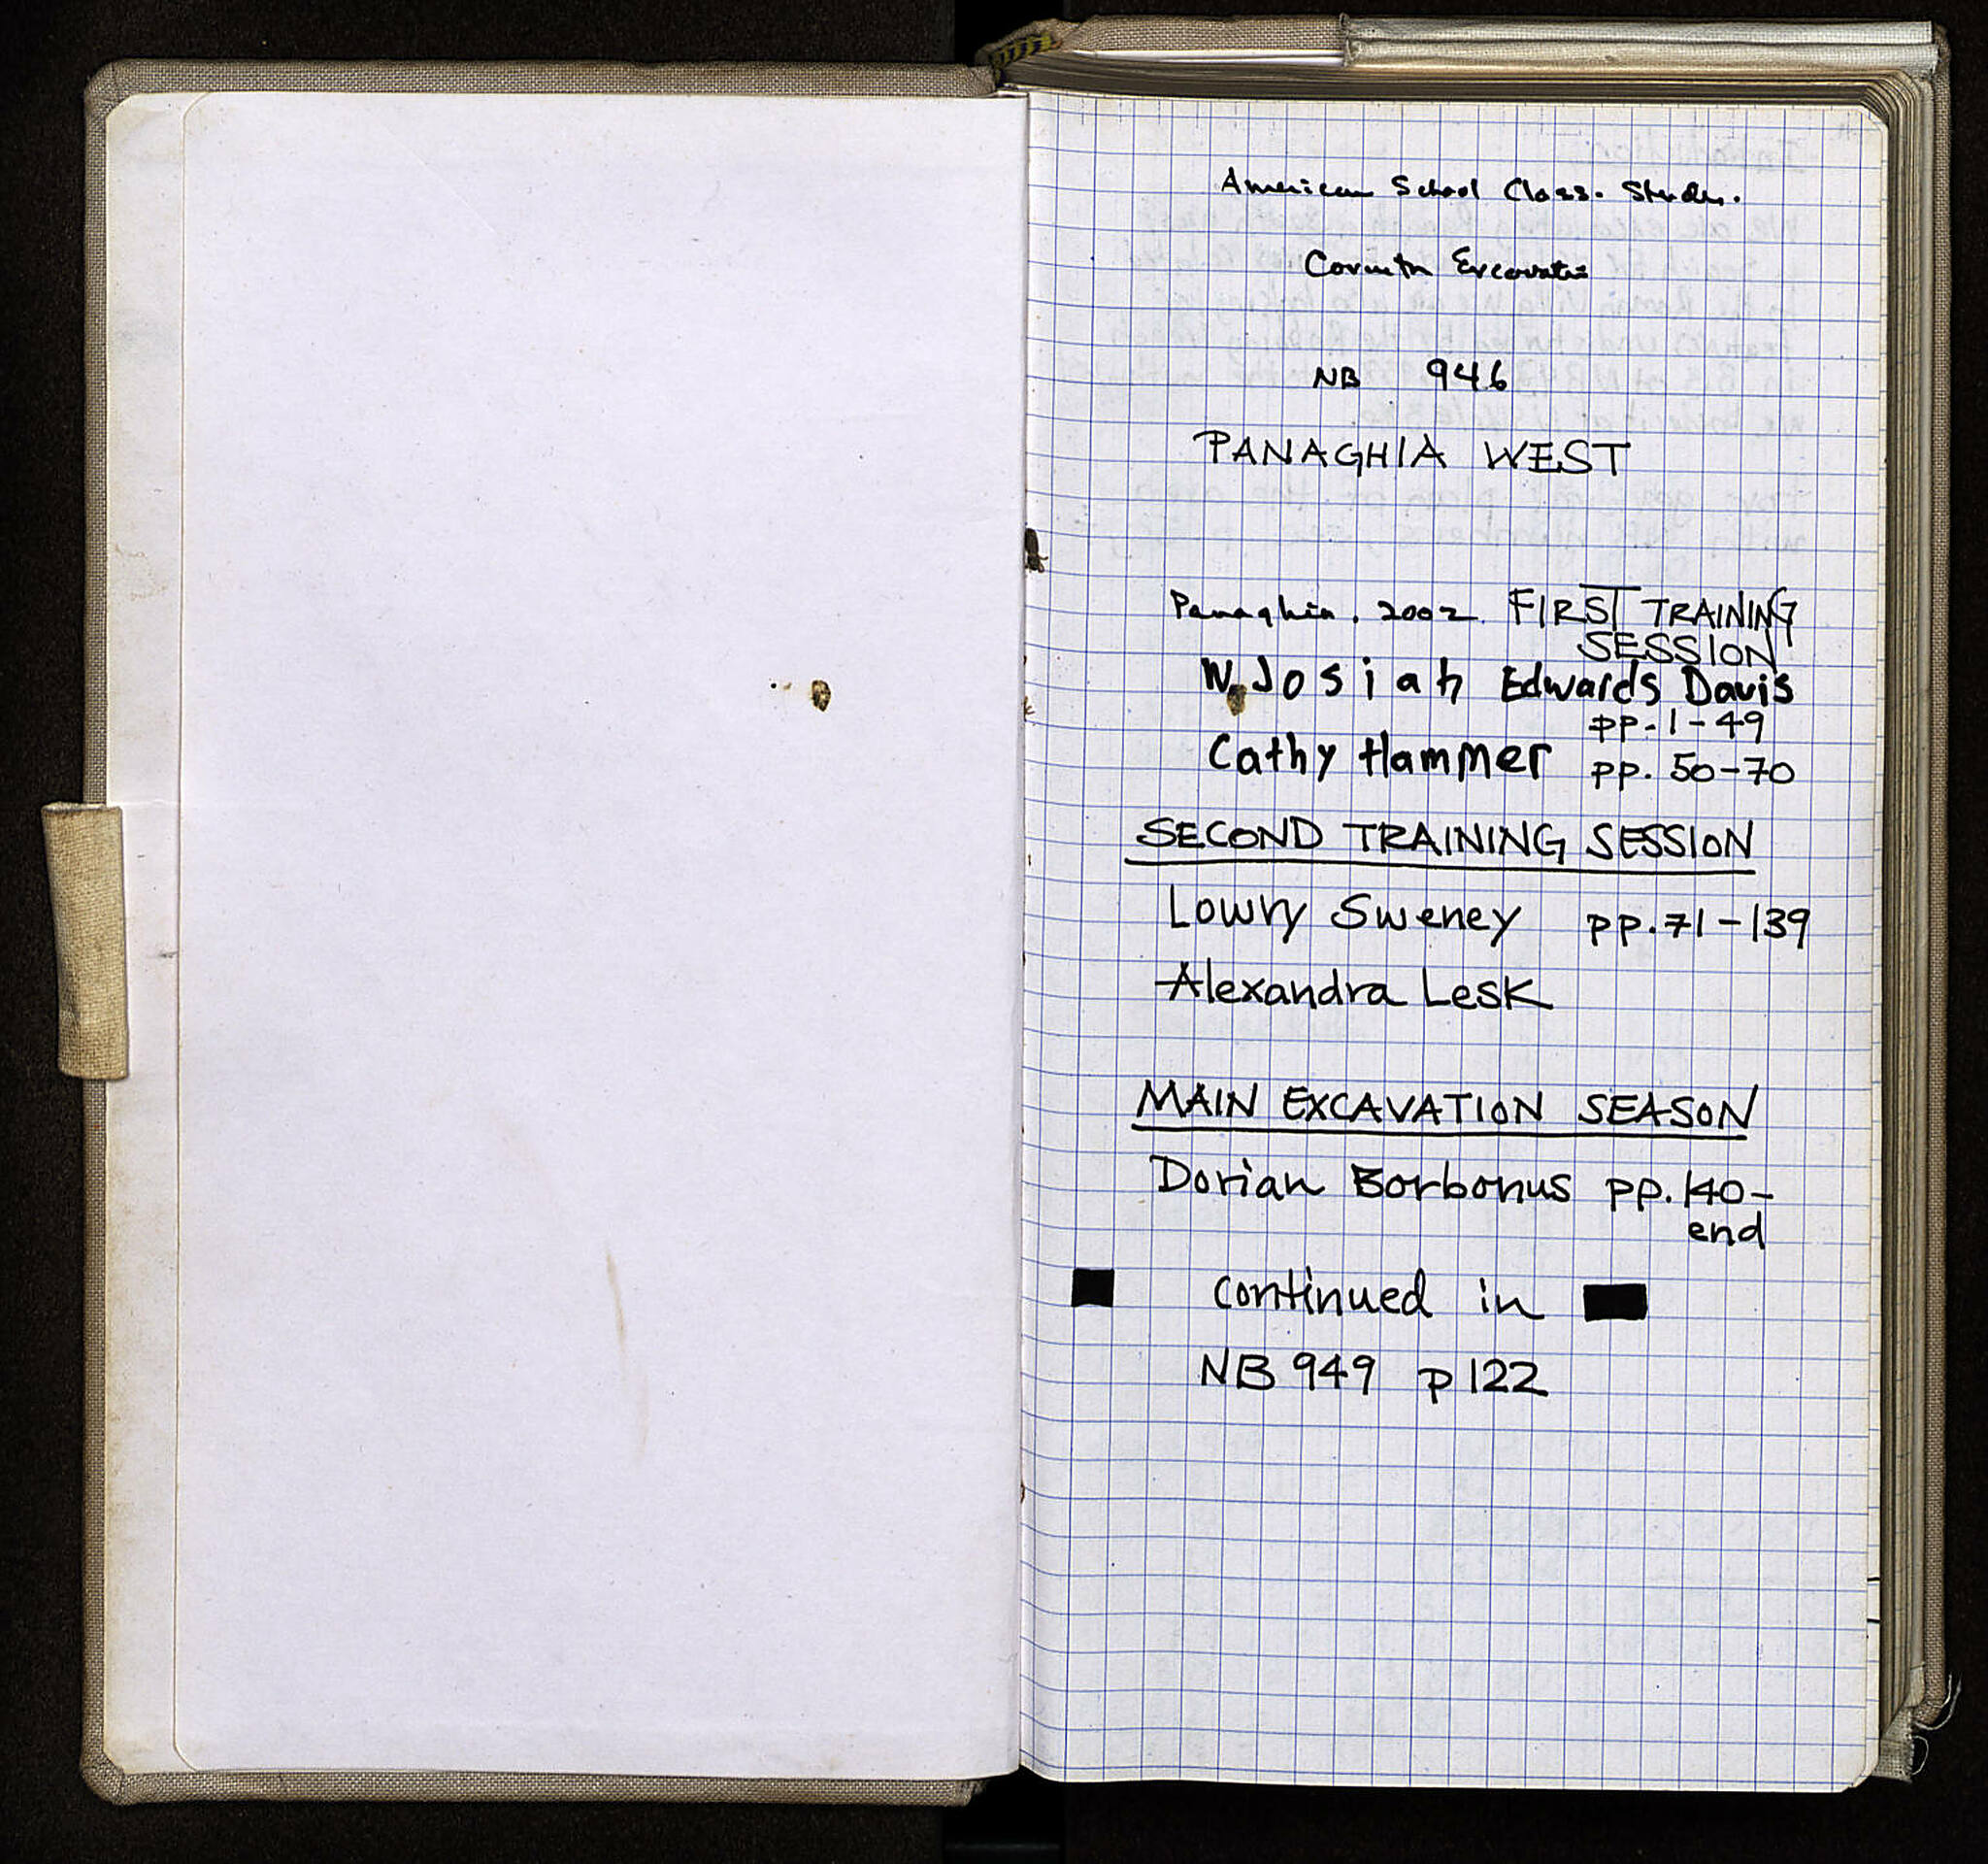 American School Class. Studies.
Corinth Excavations
NB 946
PANAGHIA WEST
Panaghia. 2002. FIRST TRAINING
SESSION
W. Josiah Edwards Davis
pp. 1-49
Cathy Hammer pp. 50-70
SECOND TRAINING SESSION
Lowry Sweney pp. 71-139
Alexandra Lesk
MAIN EXCAVATION SEASON
Dorian Borbonus pp. 140-
end
continued in
NB 949 p 122